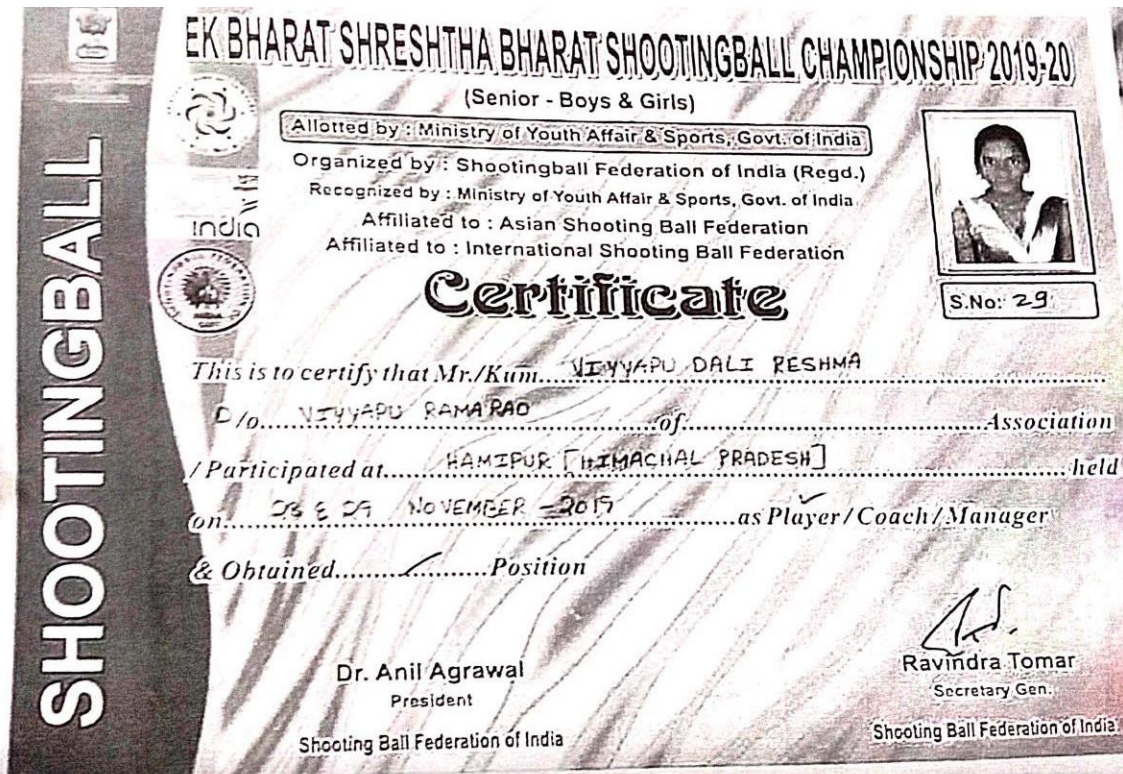 SHOOTINGBALL
EK BHARAT SHRESHTHA BHARAT SHOOTINGBALL CHAMPIONSHIP 2019-20
(Senior - Boys & Girls)
Allotted by : Ministry of Youth Affair & Sports, Govt. of India
Organized by : Shootingball Federation of India (Regd.)
Recognized by : Ministry of Youth Affair & Sports, Govt. of India
Affiliated to : Asian Shooting Ball Federation
Affiliated to : International Shooting Ball Federation
india
Certificate
S.No: 29
This is to certify that Mr./Kum....VIYYAPU DALI RESHMA
D/o....VIYYAPU RAMA RAO....of....Association
/ Participated at....HAMIPUR [HIMACHAL PRADESH]....held
on....& 29 NOVEMBER - 2019....as Player / Coach / Manager
& Obtained....Position
Dr. Anil Agrawal
President
Shooting Ball Federation of India
Ravindra Tomar
Secretary Gen.
Shooting Ball Federation of India